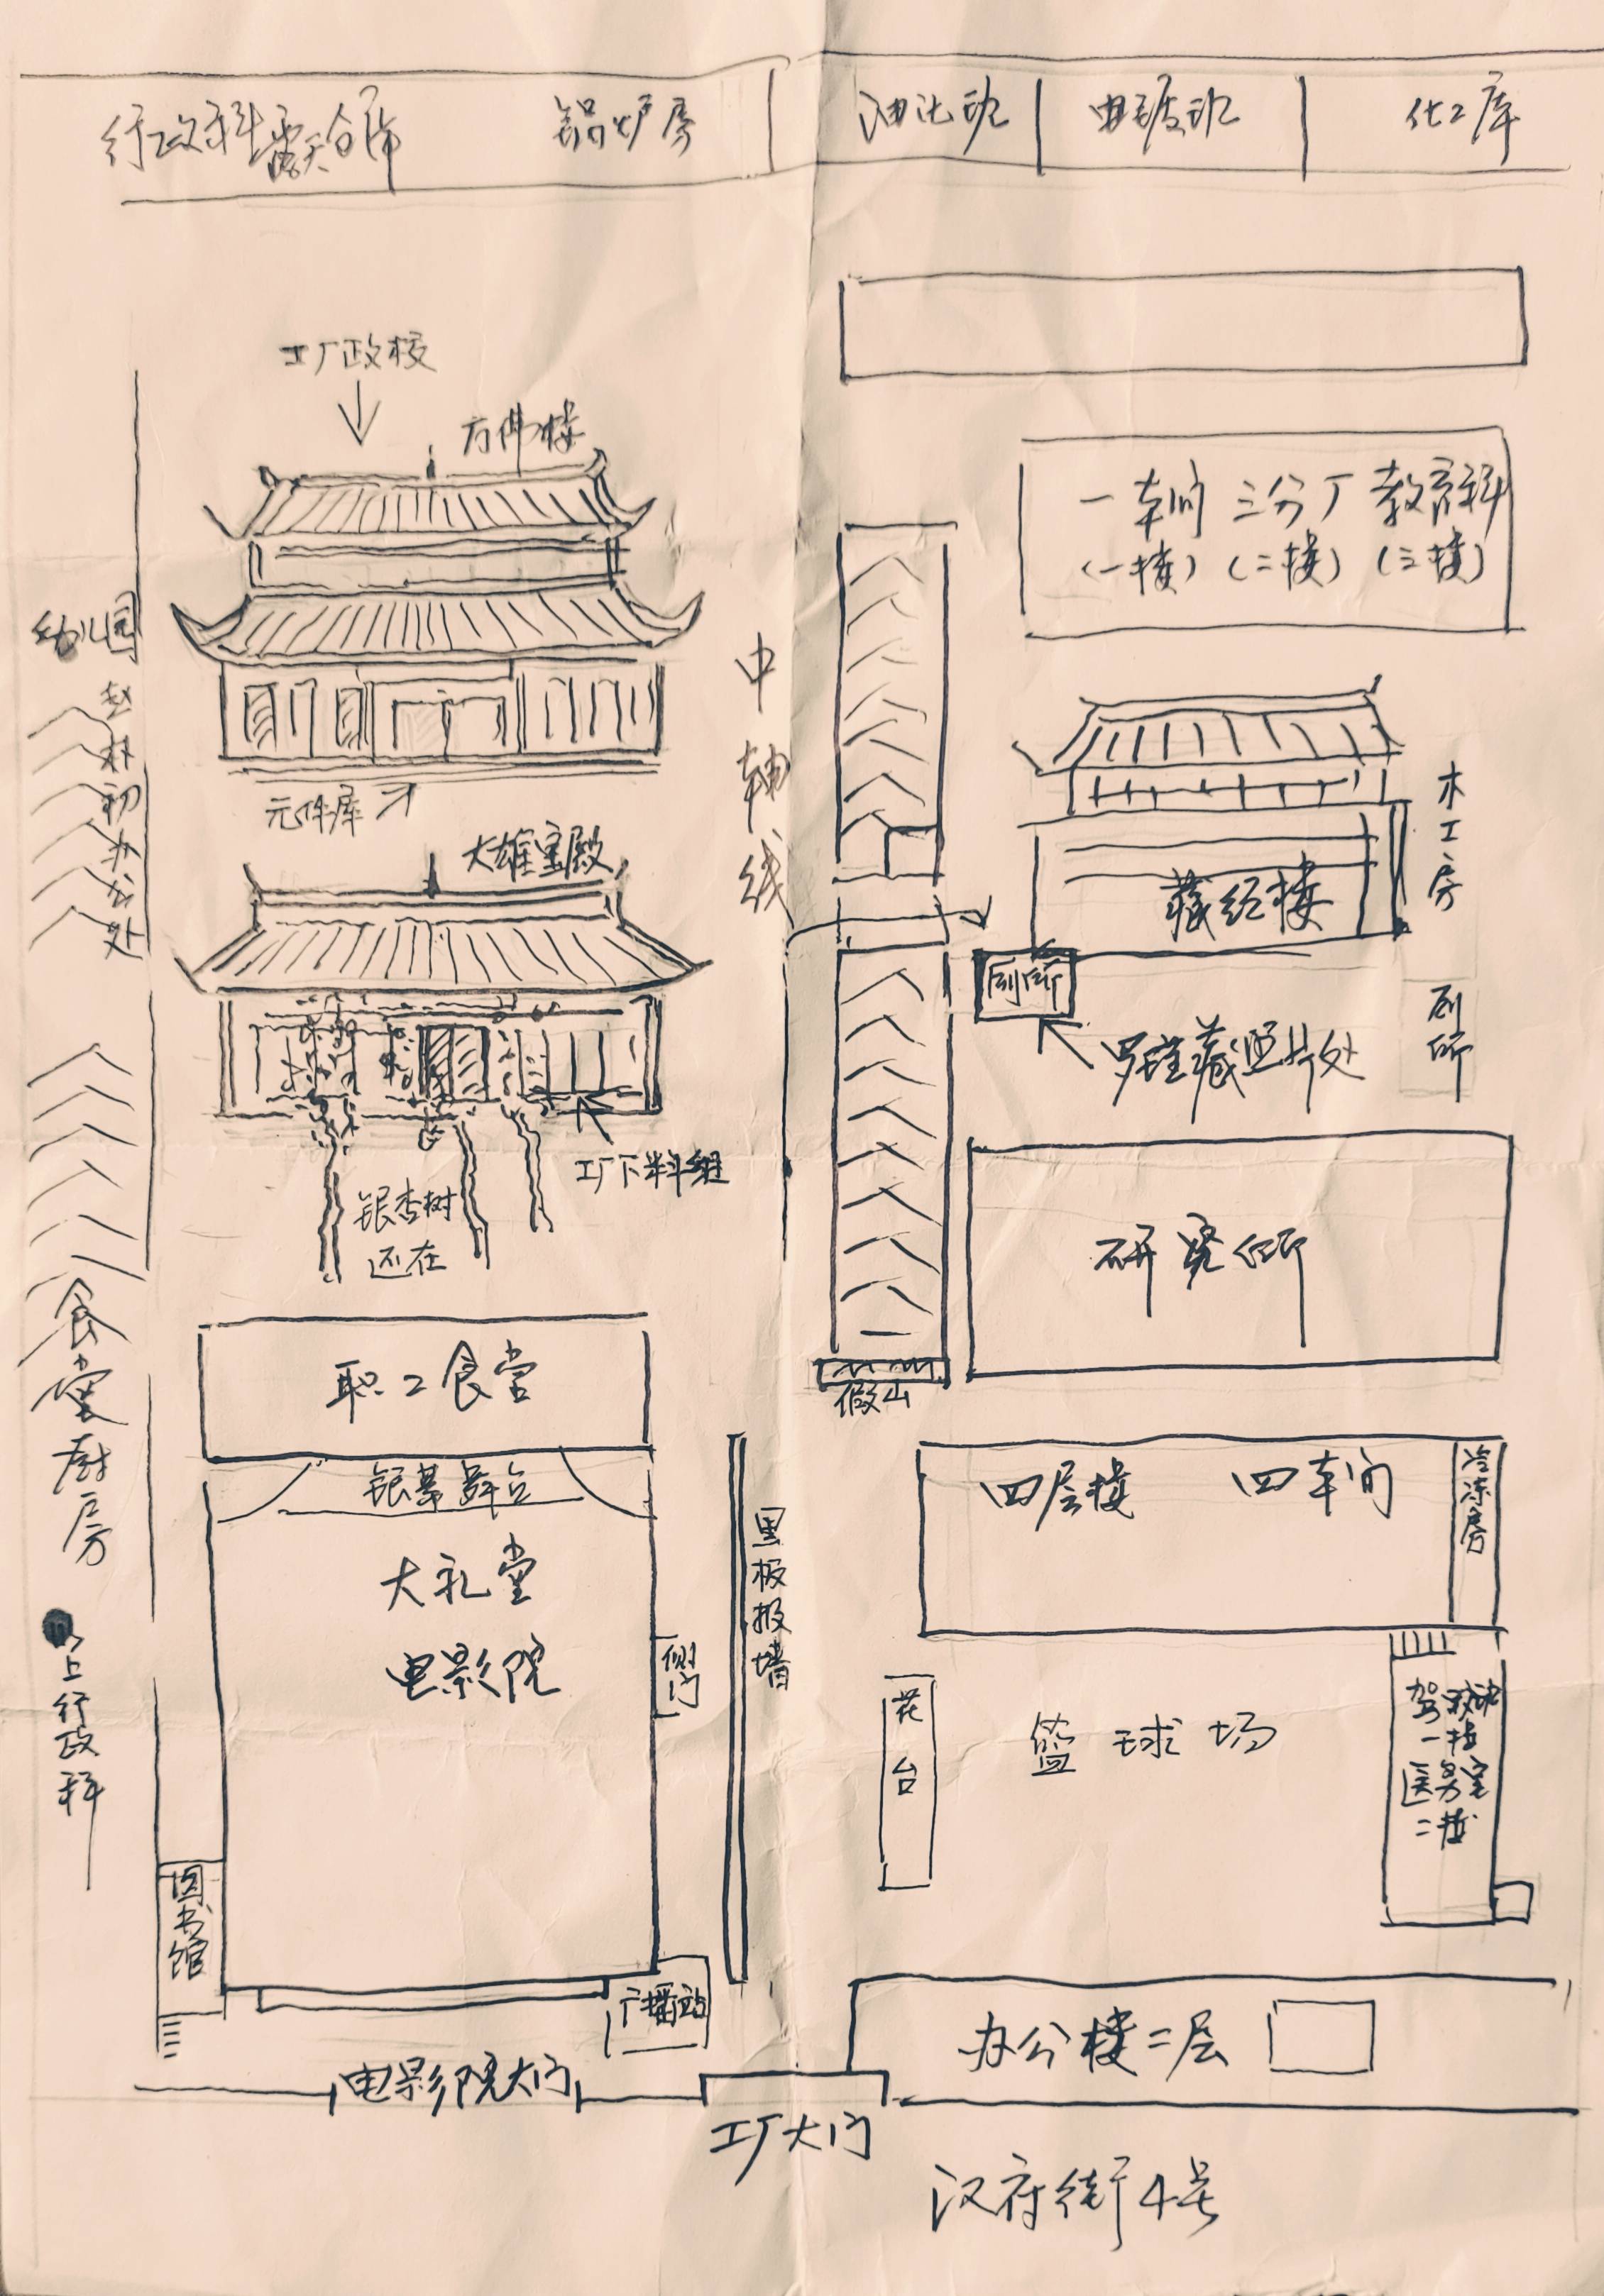 行政科露天仓库
锅炉房
油化班
电镀班
化工库
工厂政校
万佛楼
一车间 三分厂 教育科
(一楼) (二楼) (三楼)
幼儿园
赵朴初办公处
中轴线
元件库
木工房
藏经楼
大雄宝殿
厕所
厕所
罗瑾藏照片处
工厂下料组
银杏树
还在
研究所
食堂厨房
职工食堂
假山
银幕舞台
四层楼 四车间
冷冻房
大礼堂
电影院
黑板报墙
侧门
以上行政科
花台
篮球场
一楼
医务室
二楼
图书馆
广播站
办公楼二层
电影院大门
工厂大门
汉府街4号